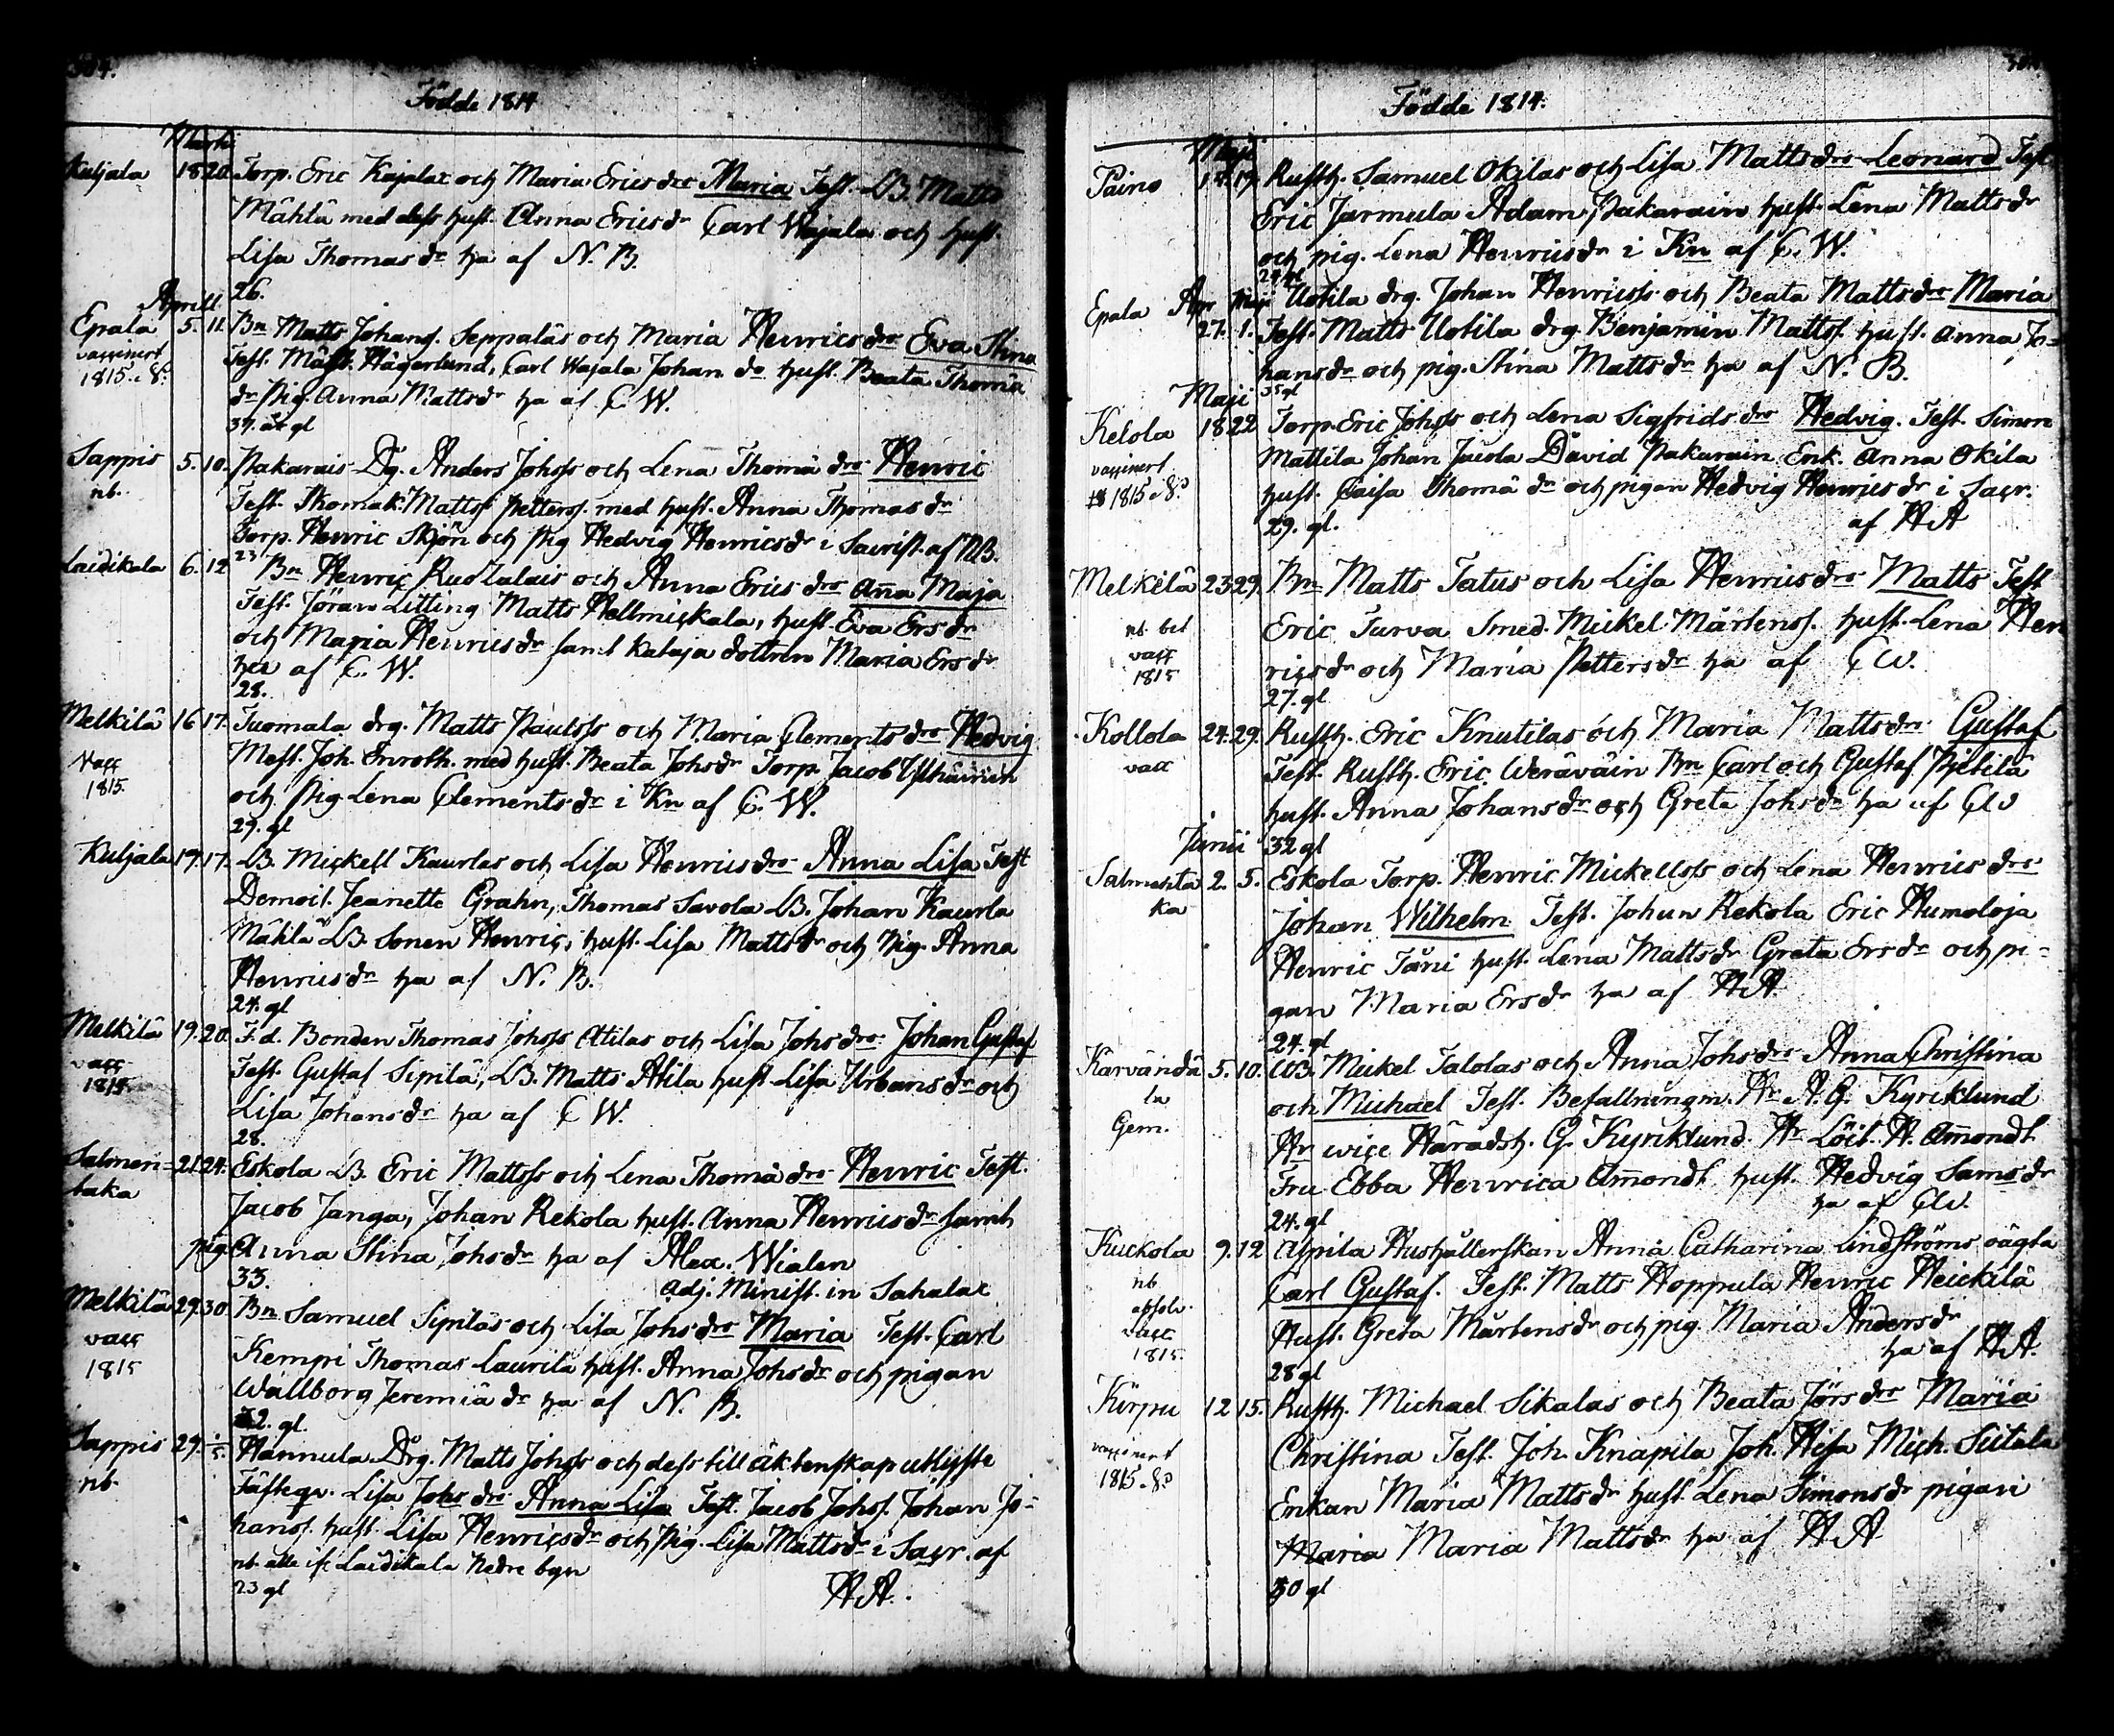 304.
Födde 1814
Martii
Kuljala 18 20. Torp. Eric Kajalas och Maria Ericsdrs Maria Test. LB. Matts
Mähkä med dess hust. Anna Ericsdr Carl Wajala och hust.
Lisa Thomasdr ha af N. B.
26.
Aprill
Epala 5. 11. Bn Matts Johanss. Seppaläs och Maria Henricsdrs Eva Stina
vaccinert
1815. 8:
Test. Mäst. Hägerlund, Carl Wajala Johan do hust. Beata Thomä
dr Pig. Anna Mattsdr ha af C. W.
37. år gl
Sappis 5. 10. Pakarais Dg. Anders Johss och Lena Thomä drs Henric
nb.
Test. Matts Petters. med hust. Anna Thomas dr
Torp. Henric Skjön och Pig Hedvig Henricsdr i Sacrist. af NB.
23
Laidikala 6. 12 Bn Henric Rustalais och Anna Erics drs Aña Maja
Test. Jöran Litting Matts Hellmickala, hust. Eva Ersdr
och Maria Henricsdr samt Kataja dottren Maria Ersdr
ha af C. W.
28.
Melkilä 16 17. Tuomala drg. Matts Paulss och Maria Clements drs Hedvig
Vacc
1815.
Mest. Joh. Enroth. med hust. Beata Johsdr Torp Jacob
och Pig Lena Clementsdr i Kn af C. W.
29. gl
Kuljala 17. 17. LB. Mickell Kaurlas och Lisa Henricsdrs Anna Lisa Test
Demois. Jeanette Grahn, Thomas Savola LB. Johan Kaurla
Mähkä LB. Sonen Henric, hust. Lisa Mattsdr och Pig. Anna
Henricsdr ha af N. B.
24. gl
Melkilä 19. 20. F.d. Bonden Thomas Johss Atilas och Lisa Johsdrs Johan Gustaf
vacc
1815.
Test. Gustaf Sipilä, LB. Matts Atila hust Lisa Urbansdr och
Lisa Johansdr ha af C W.
28.
Salmen- 21. 24. Eskola LB. Eric Mattss och Lena Thomä drs Henric Test.
taka
Jacob Janga, Johan Rekola hust. Anna Henricsdr samt
pig. Anna Stina Johsdr ha af Alex. Wialen
33. Adj. Minist. in Sahalax
Melkilä 29. 30. Bn Samuel Sipiläs och Lisa Johsdrs Maria Test. Carl
vacc
1815
Kempi Thomas Laurila hust. Anna Johsdr och pigan
Wallborg Jeremiä dr ha af N. B.
32. gl.
Sappis 29. Hannula Drg. Matts Johss och dess till äktenskap utlyste
nb.
Fästeqv. Lisa Johsdrs Anna Lisa Test. Jacob Johss. Johan Jo-
hanss. hust. Lisa Henricsdr och Pig. Lisa Mattsdr i Sacr. af
nb. Laidikala Nedre byn
23 gl H A.
Födde 1814.
Maji
Paino 18. 19. Rusth. Samuel Okilas och Lisa Mattsdrs Leonard Test
Eric Jarmula Adam Pakarain hust. Lena Mattsdr
och pig. Lena Henricsdr i Kn af C. W.
24 gl
Apr Maji
Epala 27. 1. Uotila drg. Johan Henricss och Beata Mattsdrs Maria
Test. Matts Uotila drg. Benjamin Mattss. hust. Anna Jo-
hansdr och pig. Stina Mattsdr ha af N. B.
35 gl
Maji
Ketola 18 22 Torp. Eric Johss och Lena Sigfridsdrs Hedvig. Test. Simon
vaccinert
1815. 8:
Mattila Johan Jacola David Pakarain Enk. Anna Okila
hust. Caisa Thomä dr och pigan Hedvig Henricsdr i Sacr.
29. gl. af H A
Melkilä 23 29. Bn Matts Tatus och Lisa Henricsdrs Matts Test
nb. bet
vacc
1815
Eric Turva Smed. Mickel Mårtenss. hust. Lena Hen
ricsdr och Maria Pettersdr ha af C W.
27. gl
Kollola 24. 29. Rusth. Eric Knutilas och Maria Mattsdrs Gustaf
vacc
Test. Rusth. Eric Weräväin Bn Carl och Gustaf Pjetilä
hust. Anna Johansdr och Greta Johsdr ha af C W
32 gl
Junii
Salmenta 2. 5. Eskola Torp. Henric Mickellss och Lena Henrics drs
ka
Johan Wilhelm Test. Johan Rekola Eric Humaloja
Henric Täni hust. Lena Mattsdr Greta Ersdr och pi-
gan Maria Ersdr ha af H A
24. gl
Karvändä 5. 10. LB. Mickel Talolas och Anna Johsdrs Anna Christina
la
Gem.
och Michael Test. Befallningm. Hr A. G. Kyrcklund
Hr wice Häradsh. G. Kyrcklund. Hr Löit. A. Amondt
Fru Ebba Henrica Amondt hust. Hedvig Samsdr
ha af C W.
24. gl
Kuckola 9. 12 Aspila Hushållerskan Anna Catharina Lindströms oägta
nb
absolv.
vacc
1815.
Carl Gustaf. Test. Matts Hoppula Henric Heickilä
Hust. Greta Mårtensdr och pig. Maria Andersdr
ha af H A.
28 gl
Kirpu 12 15. Rusth. Michael Sikalas och Beata Jörsdrs Maria
vaccinert
1815. 8:
Christina Test. Joh. Knapila Joh. Hisa Mich. Seitala
Enkan Maria Mattsdr hust. Lena Simonsdr pigan
Maria Maria Mattsdr ha af H A
30 gl